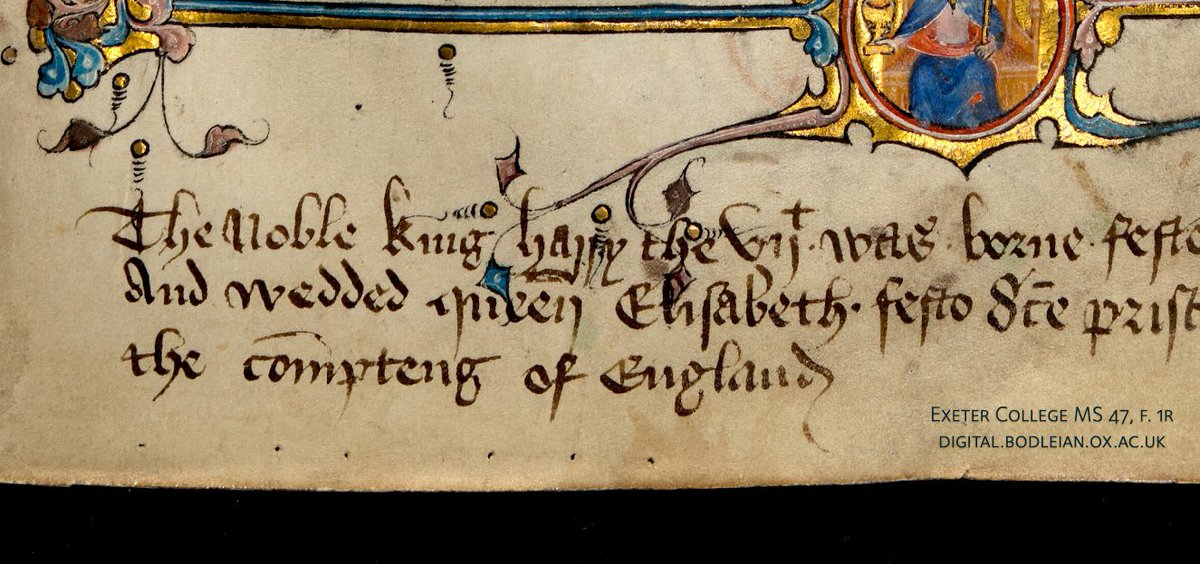 The Noble king harry the vijt was borne festo
And wedded queen Elisabeth festo sc̄e prisc
the compteng of England
EXETER COLLEGE MS 47, F. 1R
DIGITAL.BODLEIAN.OX.AC.UK